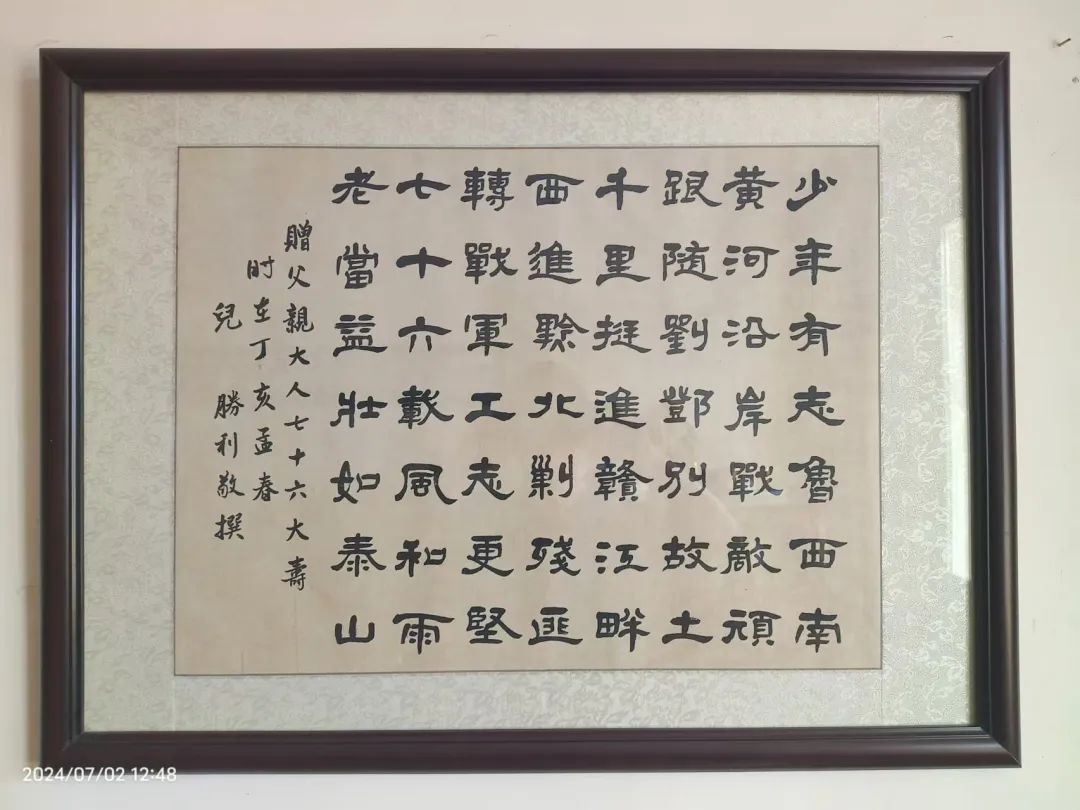 少年有志魯西南
黄河沿岸戰敵頑
跟随劉鄧别故土
千里挺進贛江畔
西進黔北剿殘匪
轉戰軍工志更堅
七十六載風和雨
老當益壯如泰山
贈父親大人七十六大壽
时在丁亥孟春
兒 勝利敬撰
2024/07/02 12:48